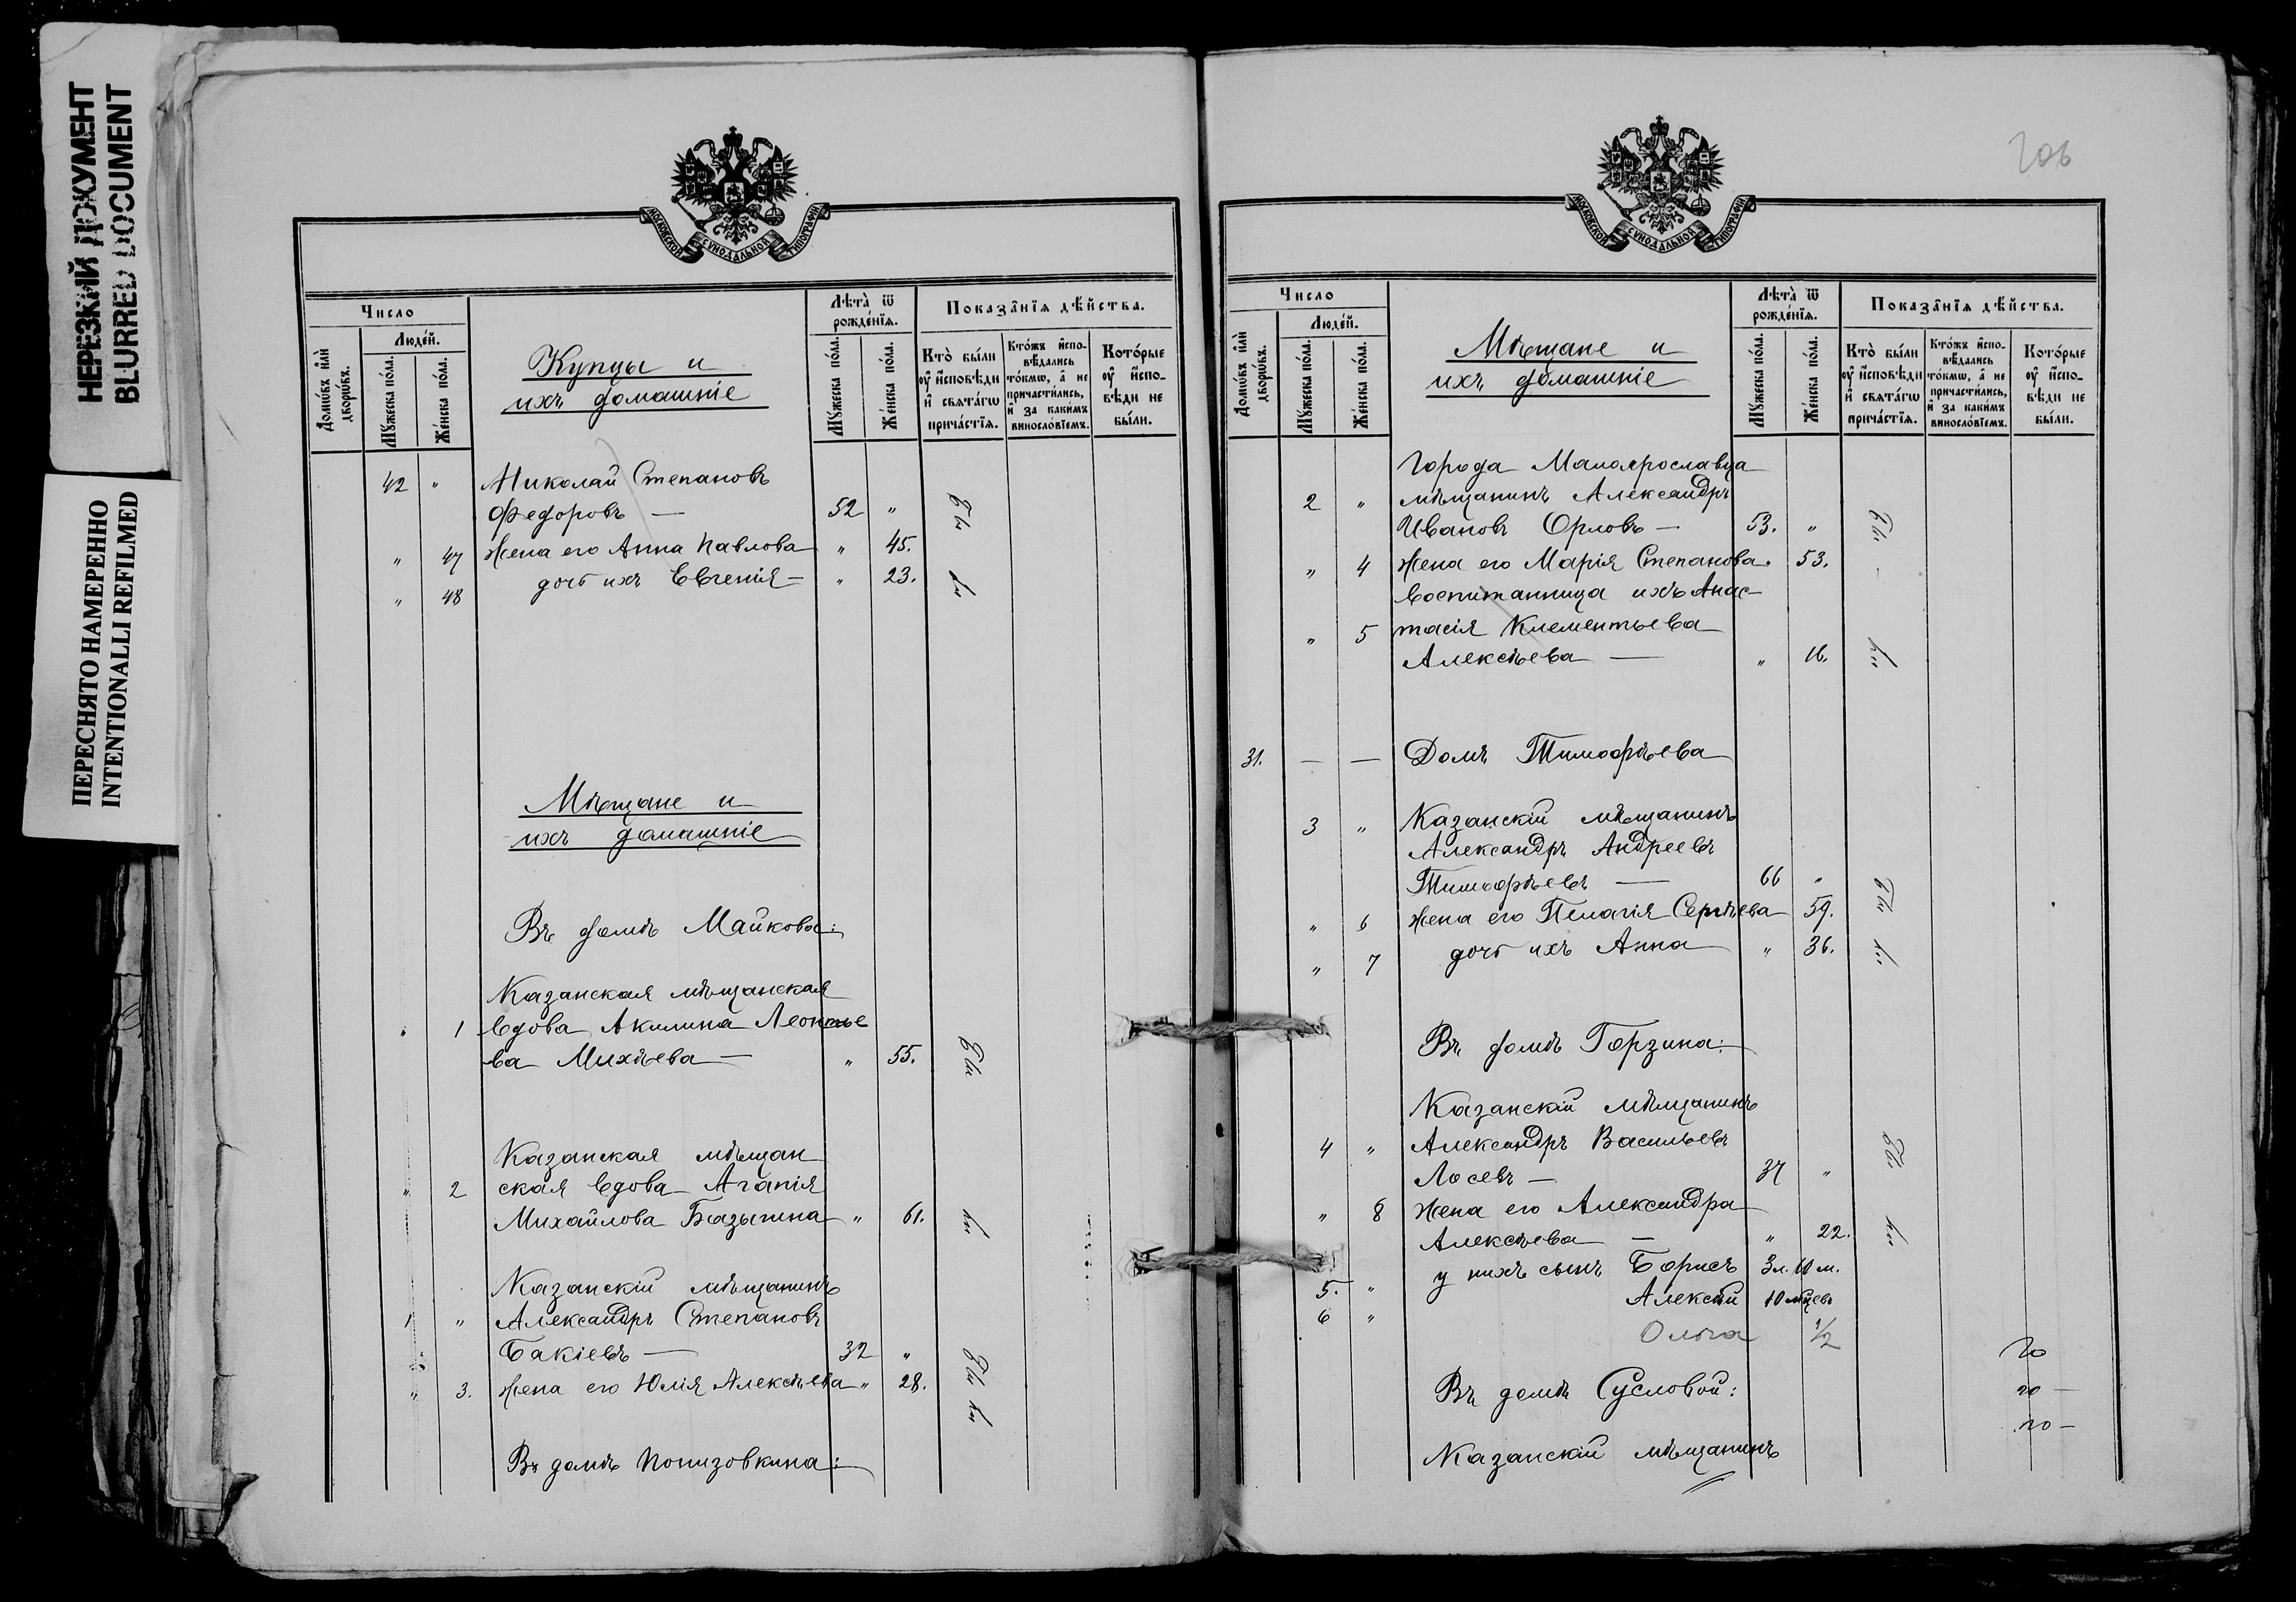 НЕРЕЗКИЙ ДОКУМЕНТ
BLURRED DOCUMENT
ПЕРЕСНЯТО НАМЕРЕННО
INTENTIONALLI REFILMED
МОСКОВСКОЙ СУНОДАЛЬНОЙ ТИПОГРАФІИ
Число
Домѡ́въ и҆лѝ дворѡ́въ.
Люде́й.
Мꙋ́жеска по́ла.
Же́нска по́ла.
Купцы и
ихъ домашніе
Лѣта̀ ѿ рожде́нїѧ.
Мꙋ́жеска по́ла.
Же́нска по́ла.
Показа̑нїѧ дѣ́йства.
Кто̀ бы́ли ᲂу҆ и҆сповѣди и҆ свѧта́гѡ прича́стїѧ.
Кто́жъ и҆спо-вѣдались то́кмѡ, а҆ не причасти́лись, и҆ за каки́мъ винослові́емъ.
Кото́рые ᲂу҆ и҆спо-вѣди не бы́ли.
42 " Николай Степановъ
Федоровъ — 52 "
" 47 жена его Анна Павлова " 45.
" 48 дочь ихъ Евгенія — " 23.
Мѣщане и
ихъ домашніе
Въ домѣ Майкова:
Казанская мѣщанская
" 1 вдова Акилина Леонтье
ва Михѣева — " 55.
Казанская мѣщан
" 2 ская вдова Агапія
Михайлова Базыгина " 61.
Казанскій мѣщанинъ
1 " Александръ Степановъ
Бакіевъ — 32 "
" 3. жена его Юлія Алексѣева " 28.
Въ домѣ Понизовкина:
206
МОСКОВСКОЙ СУНОДАЛЬНОЙ ТИПОГРАФІИ
Число
Домѡ́въ и҆лѝ дворѡ́въ.
Люде́й.
Мꙋ́жеска по́ла.
Же́нска по́ла.
Мѣщане и
ихъ домашніе
Лѣта̀ ѿ рожде́нїѧ.
Мꙋ́жеска по́ла.
Же́нска по́ла.
Показа̑нїѧ дѣ́йства.
Кто̀ бы́ли ᲂу҆ и҆сповѣди и҆ свѧта́гѡ прича́стїѧ.
Кто́жъ и҆спо-вѣдались то́кмѡ, а҆ не причасти́лись, и҆ за каки́мъ винослові́емъ.
Кото́рые ᲂу҆ и҆спо-вѣди не бы́ли.
Города Малоярославца
2 " мѣщанинъ Александръ
Ивановъ Орловъ — 53. "
" 4 жена его Марія Степанова 53.
воспитанница ихъ Анас-
" 5 тасія Клементьева
Алексѣева — " 16.
31. — — Домъ Тимофѣева
3 " Казанскій мѣщанинъ
Александръ Андреевъ
Тимофѣевъ — 66 "
" 6 жена его Пелагія Сергѣева 59.
" 7 дочь ихъ Анна " 36.
Въ домѣ Горзина:
Казанскій мѣщанинъ
4 " Александръ Васильевъ
Лосевъ — 37 "
" 8 жена его Александра
Алексѣева — " 22.
5. " у нихъ сынъ Борисъ 3 л. 10 м.
6 " Алексѣй 10 мцевъ
Ольга 1/2
Въ домѣ Сусловой:
Казанскій мѣщанинъ